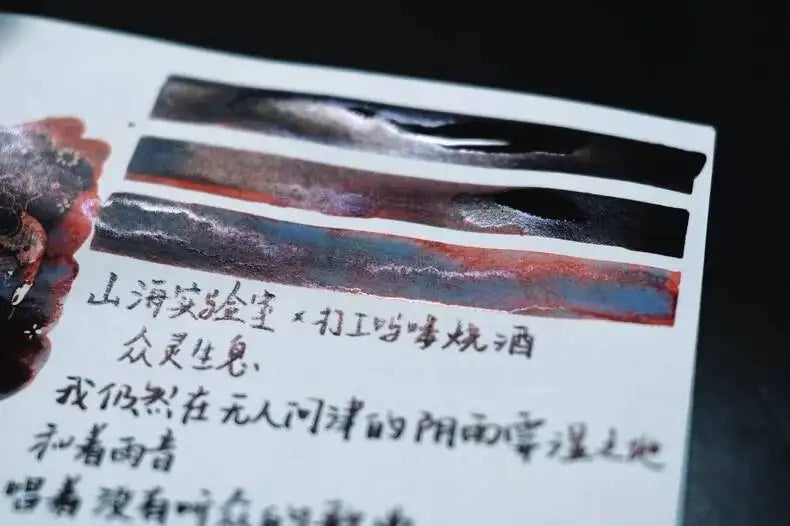 山海实验室 × 打工呜喵烧酒
众灵生息.
我仍然在无人问津的阴雨霉湿之地
和着雨音
唱着没有听众的歌曲